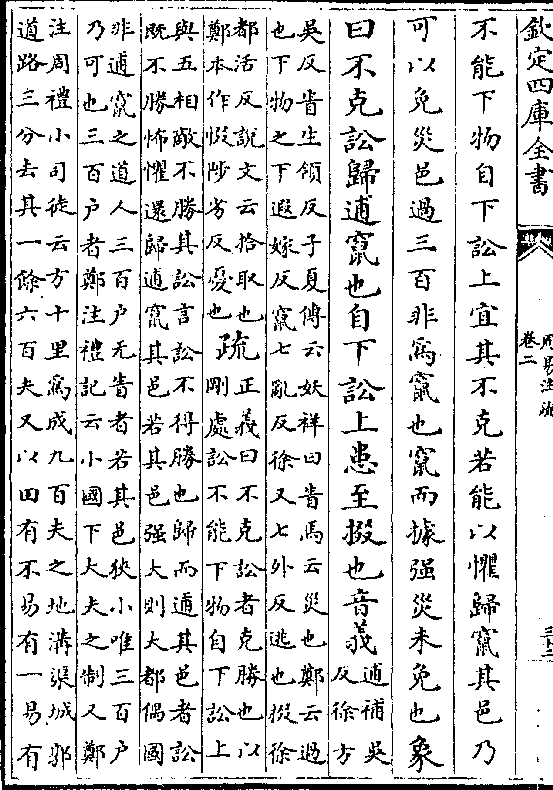 欽定四庫全書
周易注疏
卷二
不能下物自下訟上宜其不克若能以懼歸竄其邑乃
可以免災邑過三百非爲竄也竄而據强災未免也象
曰不克訟歸逋竄也自下訟上患至掇也音義
逋補吳
反徐方
吳反眚生領反子夏傳云妖祥曰眚馬云災也鄭云過
也下物之下遐嫁反竄七亂反徐又七外反逃也掇徐
都活反說文云拾取也
鄭本作惙陟劣反憂也
疏
正義曰不克訟者克勝也以
剛處訟不能下物自下訟上
與五相敵不勝其訟言訟不得勝也歸而逋其邑者訟
既不勝怖懼還歸逋竄其邑若其邑强大則大都偶國
非逋竄之道人三百户无眚者若其邑狹小唯三百户
乃可也三百户者鄭注禮記云小國下大夫之制又鄭
注周禮小司徒云方十里爲成九百夫之地溝渠城郭
道路三分去其一餘六百夫又以田有不易有一易有